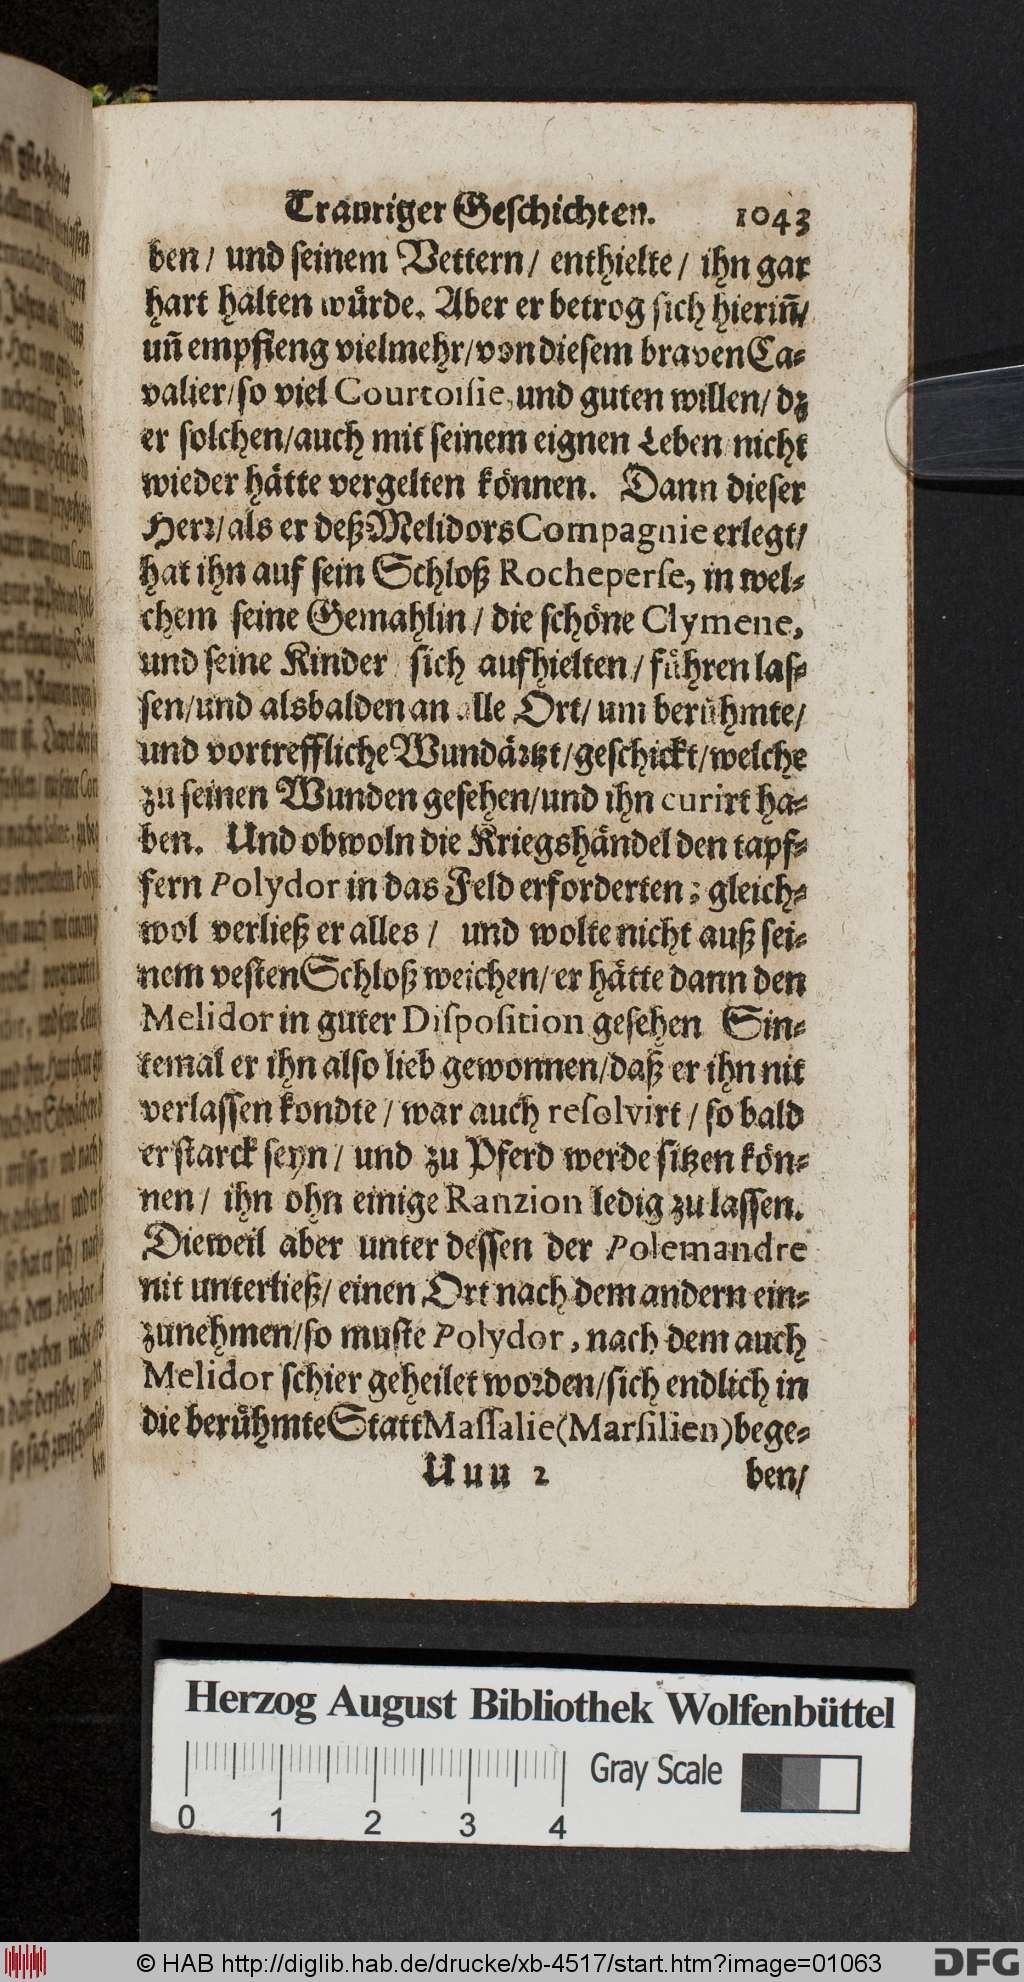 Trauriger Geschichten. 1043
ben/ und seinem Vettern/ enthielte/ ihn gar
hart halten wuͤrde. Aber er betrog sich hierin̄/
un̄ empfieng vielmehr/von diesem braven Ca-
valier/so viel Courtoisie, und guten willen/ dz
er solchen/auch mit seinem eignen Leben nicht
wieder haͤtte vergelten koͤnnen. Dann dieser
Herr/als er deß Melidors Compagnie erlegt/
hat ihn auf sein Schloß Rocheperse, in wel-
chem seine Gemahlin/ die schoͤne Clymene,
und seine Kinder sich aufhielten/ fuͤhren las-
sen/und alsbalden an alle Ort/ um beruͤhmte/
und vortreffliche Wundaͤrtzt/geschickt/welche
zu seinen Wunden gesehen/und ihn curirt ha-
ben. Und obwoln die Kriegshaͤndel den tapf-
fern Polydor in das Feld erforderten; gleich-
wol verließ er alles/ und wolte nicht auß sei-
nem vesten Schloß weichen/er haͤtte dann den
Melidor in guter Disposition gesehen Sin-
temal er ihn also lieb gewonnen/daß er ihn nit
verlassen kondte/ war auch resolvirt/ so bald
er starck seyn/ und zu Pferd werde sitzen koͤn-
nen/ ihn ohn einige Ranzion ledig zu lassen.
Dieweil aber unter dessen der Polemandre
nit unterließ/ einen Ort nach dem andern ein-
zunehmen/so muste Polydor, nach dem auch
Melidor schier geheilet worden/sich endlich in
die beruͤhmte Statt Massalie (Marsilien) bege-
Uuu 2 ben/
Herzog August Bibliothek Wolfenbüttel
Gray Scale
0 1 2 3 4
© HAB http://diglib.hab.de/drucke/xb-4517/start.htm?image=01063
DFG